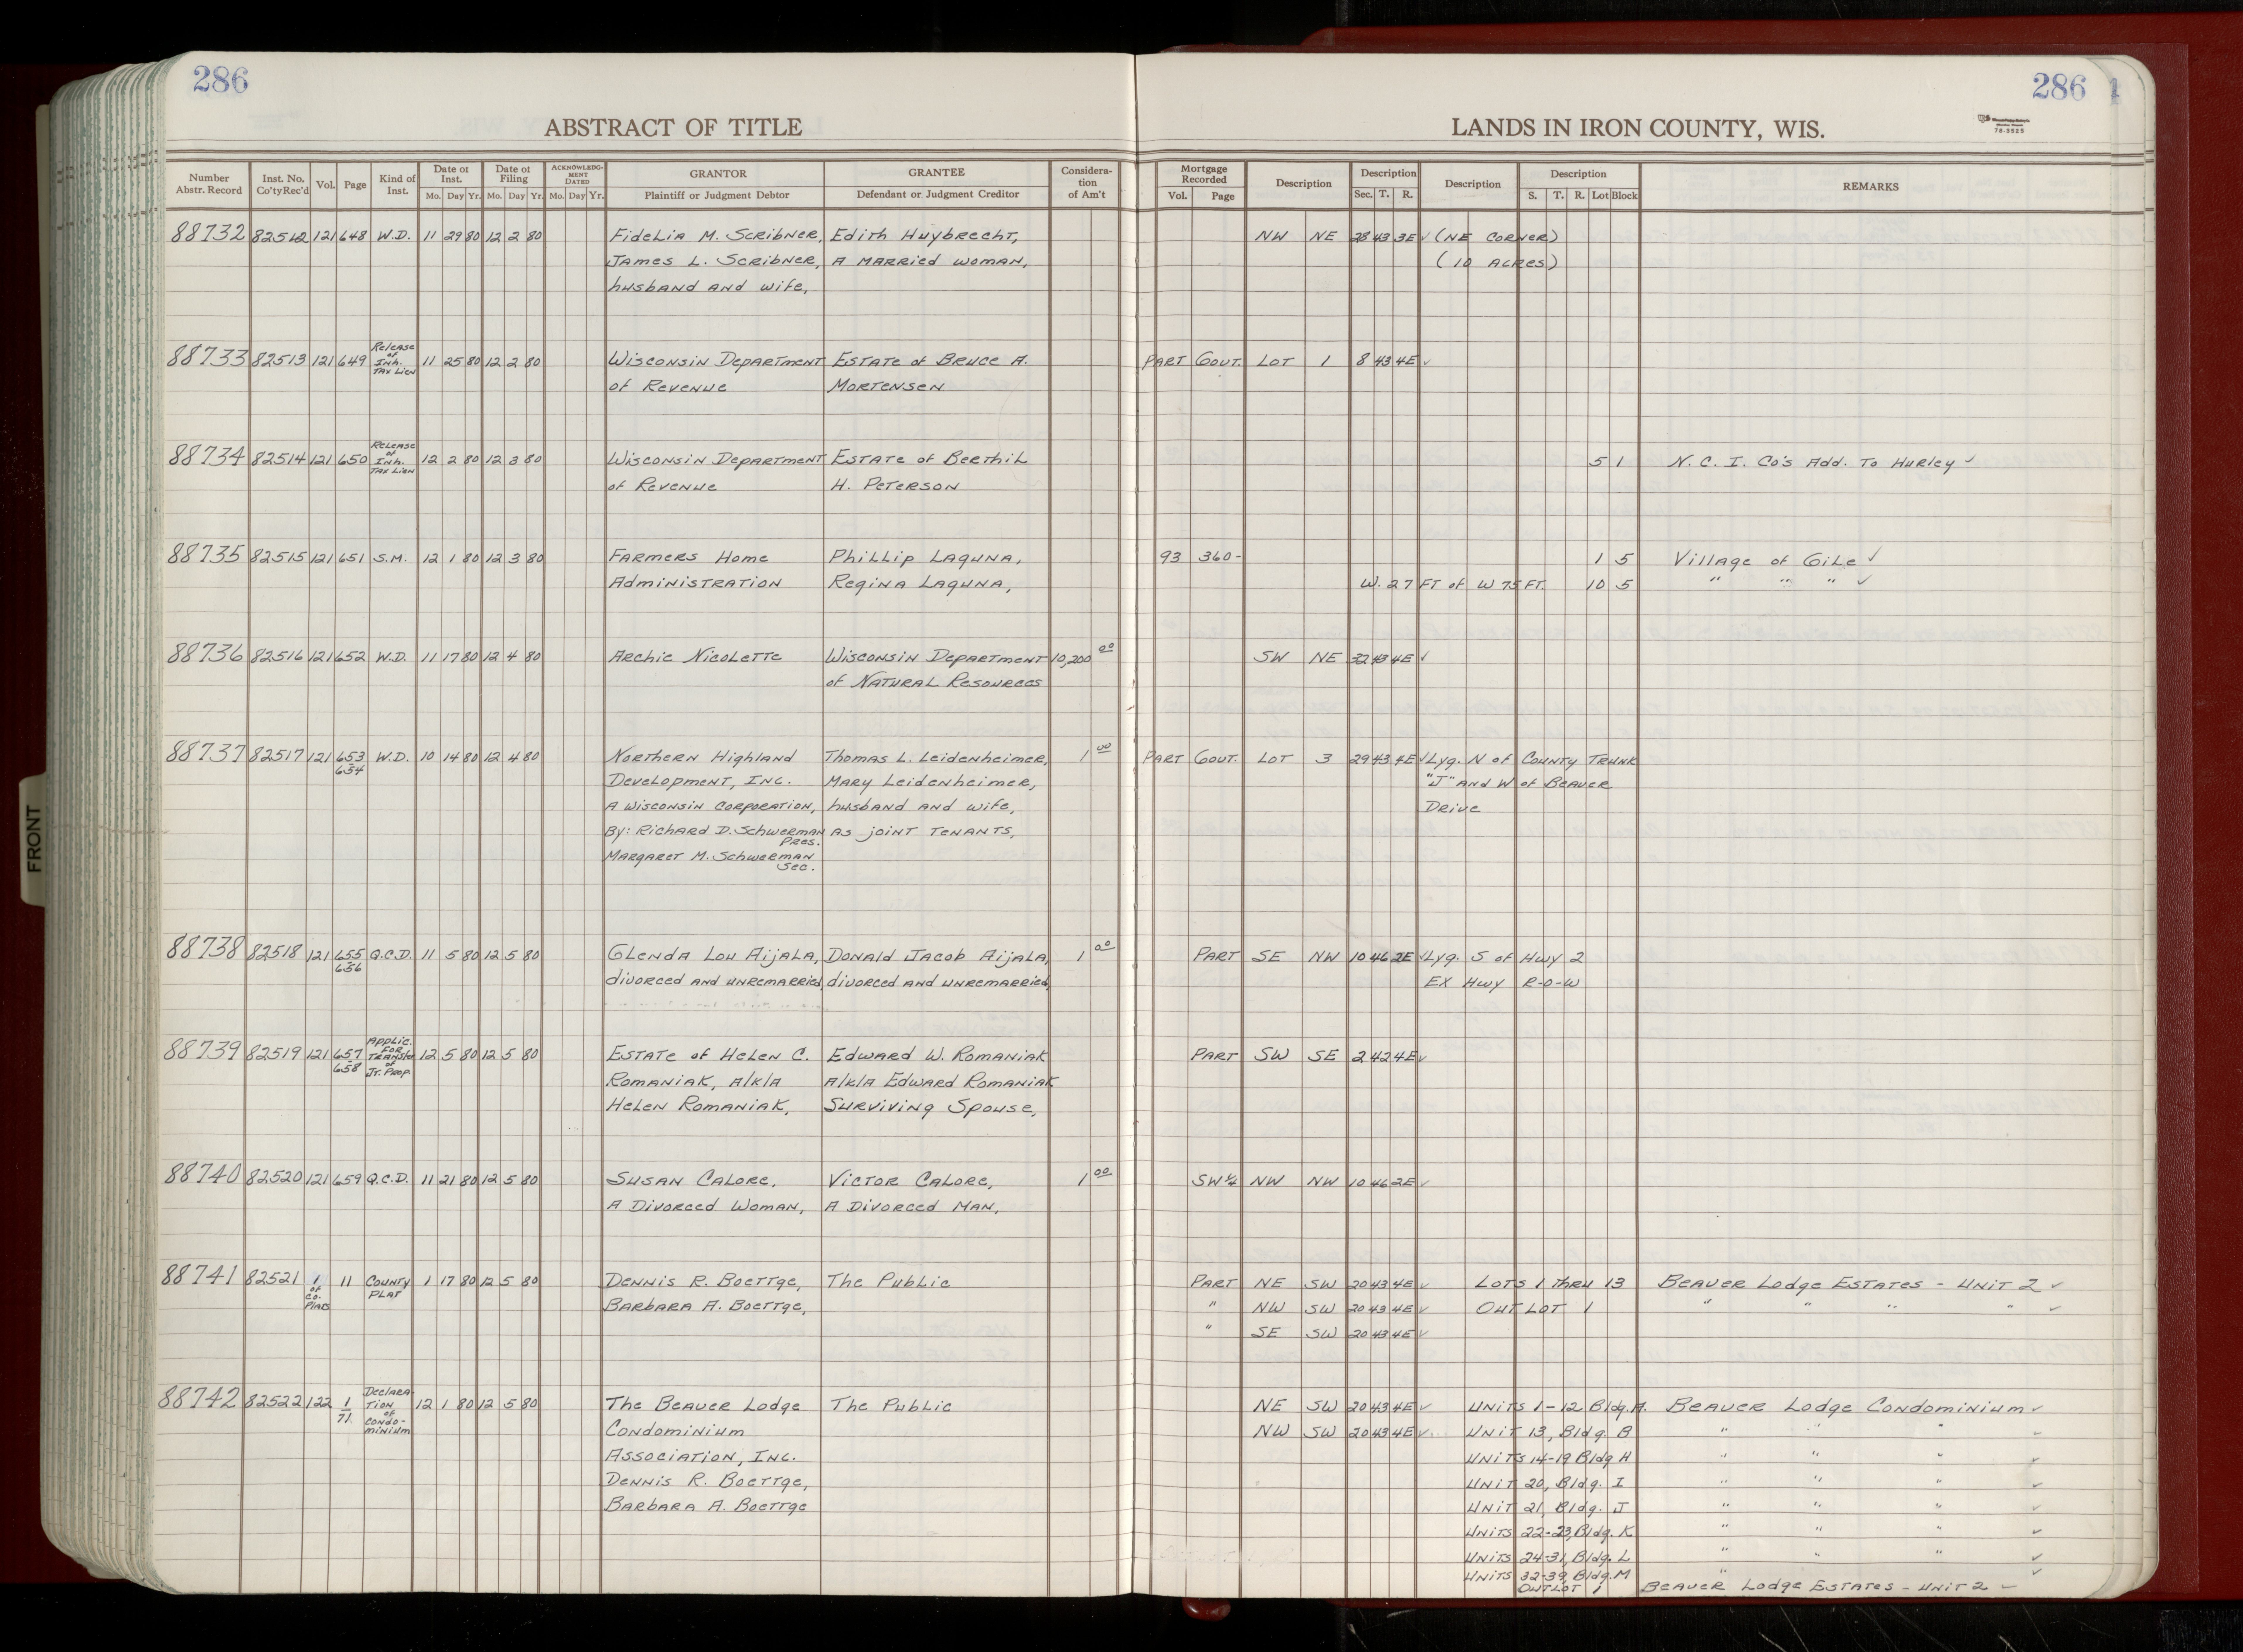 286
286
ABSTRACT OF TITLE
LANDS IN IRON COUNTY, WIS.
78-3525
FRONT
Number Abstr. Record | Inst. No. Co'ty Rec'd | Vol. | Page | Kind of Inst. | Date of Inst. Mo. Day Yr. | Date of Filing Mo. Day Yr. | ACKNOWLEDG-MENT DATED Mo. Day Yr. | GRANTOR Plaintiff or Judgment Debtor | GRANTEE Defendant or Judgment Creditor | Considera-tion of Am't | Mortgage Recorded Vol. Page | Description | Description Sec. T. R. | Description | Description S. T. R. Lot Block | REMARKS
88732 82512 121 648 W.D. 11 29 80 12 2 80 Fidelia M. Scribner, Edith Huybrecht, NW NE 28 43 3E ✓ (NE Corner)
James L. Scribner, A Married Woman, (10 Acres)
husband and wife,
88733 82513 121 649 Release of Inh. Tax Lien 11 25 80 12 2 80 Wisconsin Department Estate of Bruce A. Part Gout. Lot 1 8 43 4E ✓
of Revenue Mortensen
88734 82514 121 650 Release of Inh. Tax Lien 12 2 80 12 3 80 Wisconsin Department Estate of Berthil 5 1 N. C. I. Co's Add. To Hurley ✓
of Revenue H. Peterson
88735 82515 121 651 S.M. 12 1 80 12 3 80 Farmers Home Phillip Laguna, 93 360- 1 5 Village of Gile ✓
Administration Regina Laguna, W. 27 FT of W 75 FT. 10 5 " " " ✓
88736 82516 121 652 W.D. 11 17 80 12 4 80 Archie Nicolette Wisconsin Department 10,200 00 SW NE 32 43 4E ✓
of Natural Resources
88737 82517 121 653 654 W.D. 10 14 80 12 4 80 Northern Highland Thomas L. Leidenheimer, 1 00 Part Gout. Lot 3 29 43 4E ✓ Lyg. N of County Trunk
Development, Inc. Mary Leidenheimer, "J" and W of Beaver
A Wisconsin Corporation, husband and wife, Drive
By: Richard D. Schwerman Pres. as joint tenants,
Margaret M. Schwerman Sec.
88738 82518 121 655 656 Q.C.D. 11 5 80 12 5 80 Glenda Lou Aijala, Donald Jacob Aijala, 1 00 Part SE NW 10 46 2E ✓ Lyg. S of Hwy 2
divorced and unremarried, divorced and unremarried, EX Hwy R-O-W
88739 82519 121 657 658 Applic. for Transfer of Jt. Prop. 12 5 80 12 5 80 Estate of Helen C. Edward W. Romaniak Part SW SE 2 42 4E ✓
Romaniak, A/K/A A/K/A Edward Romaniak
Helen Romaniak, Surviving Spouse,
88740 82520 121 659 Q.C.D. 11 21 80 12 5 80 Susan Calore, Victor Calore, 1 00 SW¼ NW NW 10 46 2E ✓
A Divorced Woman, A Divorced Man,
88741 82521 1 of Co. Plats 11 County Plat 1 17 80 12 5 80 Dennis R. Boettge, The Public Part NE SW 20 43 4E ✓ Lots 1 thru 13 Beaver Lodge Estates - Unit 2 ✓
Barbara A. Boettge, " NW SW 20 43 4E ✓ Outlot 1 " " " " ✓
" SE SW 20 43 4E ✓
88742 82522 122 1 71. Declaration of Condo-minium 12 1 80 12 5 80 The Beaver Lodge The Public NE SW 20 43 4E ✓ Units 1-12, Bldg. A. Beaver Lodge Condominium ✓
Condominium NW SW 20 43 4E ✓ Unit 13, Bldg. B " " " ✓
Association, Inc. Units 14-19 Bldg H " " " ✓
Dennis R. Boettge, Unit 20, Bldg. I " " " ✓
Barbara A. Boettge Unit 21, Bldg. J " " " ✓
Units 22-23, Bldg. K " " " ✓
Units 24-31, Bldg. L " " " ✓
Units 32-39, Bldg. M " ✓
Outlot 1 Beaver Lodge Estates - Unit 2 ✓